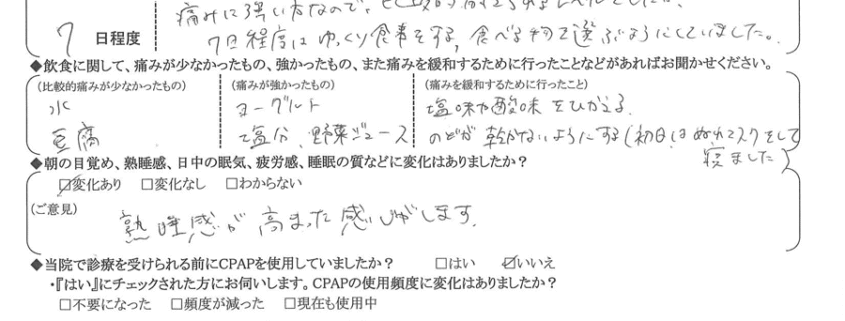 痛みに強い方なので、
7 日程度
7日程度はゆっくり食事をする, 食べる物で選ぶようにしていました。
◆飲食に関して、痛みが少なかったもの、強かったもの、また痛みを緩和するために行ったことなどがあればお聞かせください。
(比較的痛みが少なかったもの) (痛みが強かったもの) (痛みを緩和するために行ったこと)
水 ヨーグルト 塩味や酸味をひかえる
豆腐 塩分、野菜ジュース のどが乾かないようにする(初日はぬれマスクをして
寝ました)
◆朝の目覚め、熟睡感、日中の眠気、疲労感、睡眠の質などに変化はありましたか?
☑変化あり □変化なし □わからない
(ご意見)
熟睡感が高まった感じがします.
◆当院で診療を受けられる前にCPAPを使用していましたか? □はい ☑いいえ
・『はい』にチェックされた方にお伺いします。CPAPの使用頻度に変化はありましたか?
□不要になった □頻度が減った □現在も使用中